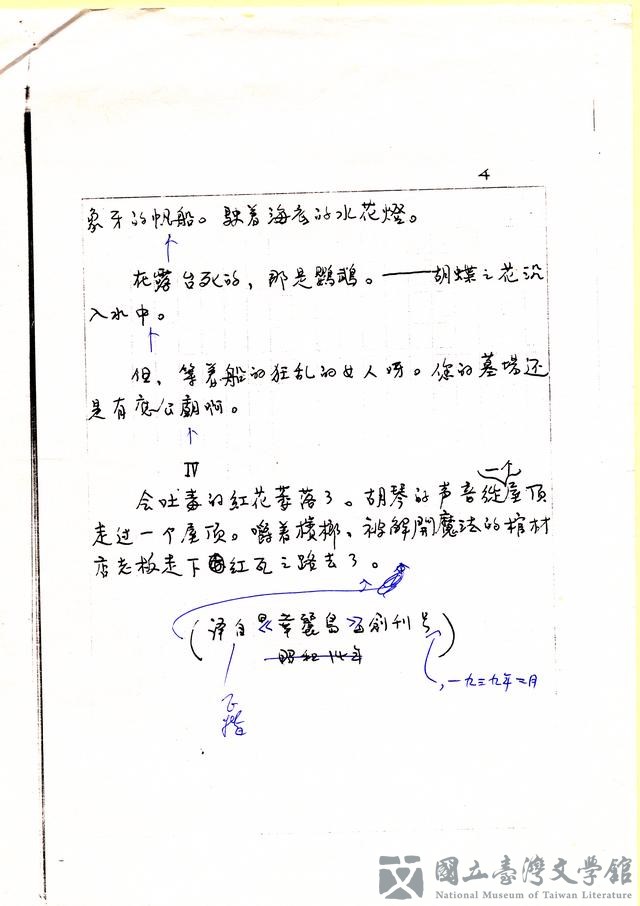 4
象牙的帆船。駛着海底的水花燈。
在露台死的，那是鸚鵡。——胡蝶之花沉
入水中。
但，等着船的狂乱的女人呀。你的墓場还
是有应公廟啊。
IV
会吐毒的紅花萎落了。胡琴的声音從一个屋顶
走过一个屋顶。嚼着檳榔、被解開魔法的棺材
店老板走下紅瓦之路去了。
(译自《華麗島》創刊号)
昭和14年
，一九三九年三月
國立臺灣文學館
National Museum of Taiwan Literature